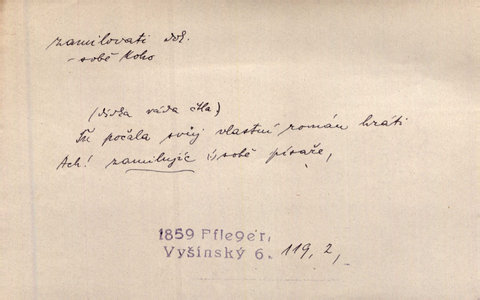 zamilovati dok.
– sobě koho
(dívka ráda čtla)
Tu počala svůj vlastní román hráti
Ach! zamilujíc si sobě písaře,
1859 Pfleger,
Vyšínský 6. 119, 2,